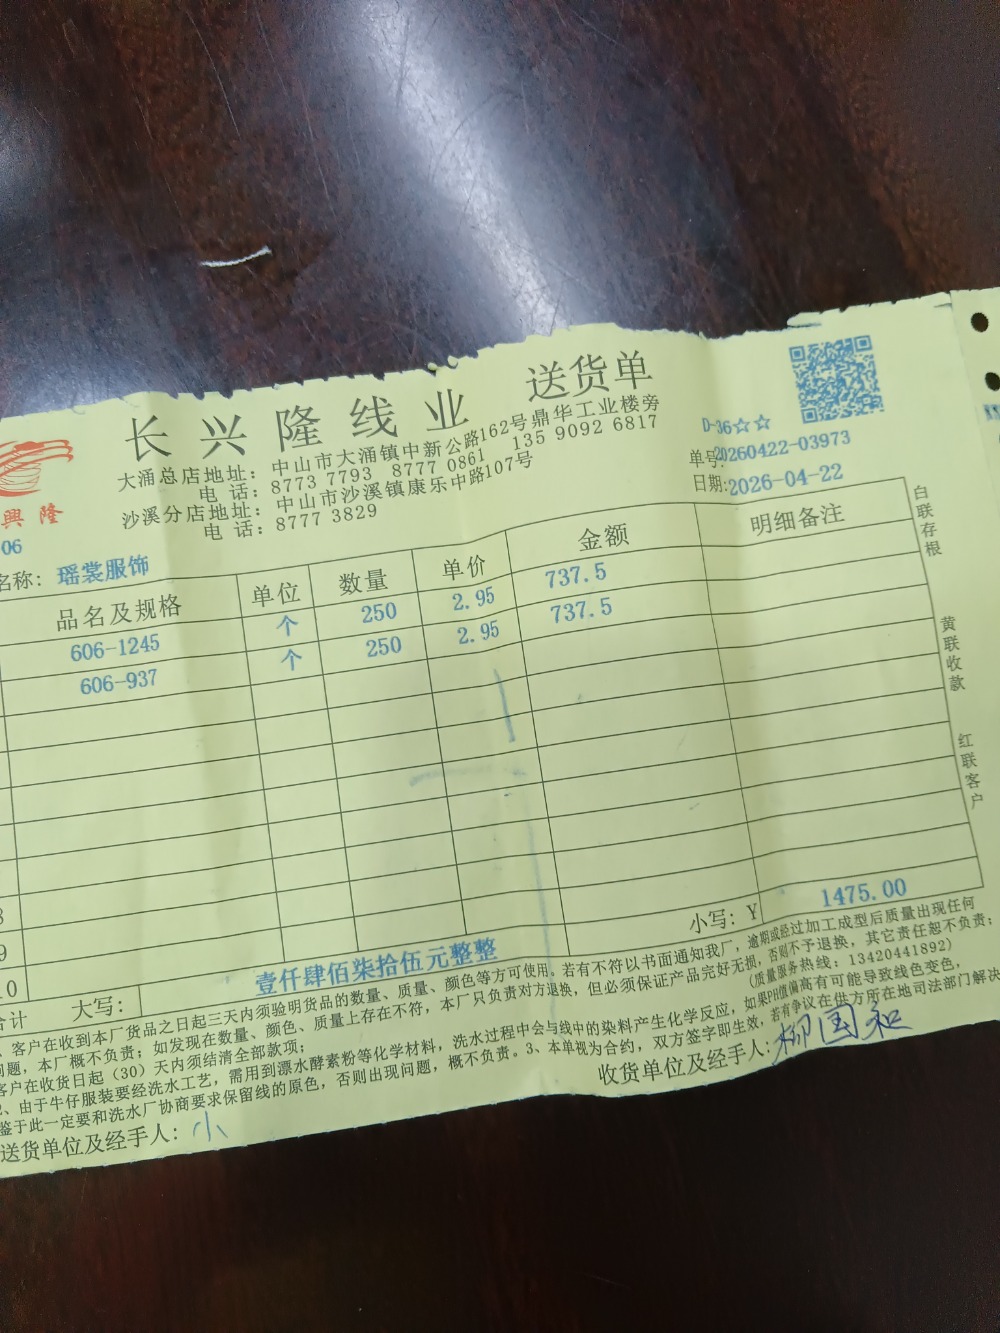 长兴隆线业 送货单
大涌总店地址：中山市大涌镇中新公路162号鼎华工业楼旁
电 话：8773 7793 8777 0861 135 9092 6817
沙溪分店地址：中山市沙溪镇康乐中路107号
电 话：8777 3829
興隆
D-36☆☆
单号:20260422-03973
日期:2026-04-22
06
名称: 瑶裳服饰
品名及规格 单位 数量 单价 金额 明细备注
606-1245 个 250 2.95 737.5
606-937 个 250 2.95 737.5
8
9
10
小写：Y 1475.00
合计 大写： 壹仟肆佰柒拾伍元整整
白联存根
黄联收款
红联客户
、客户在收到本厂货品之日起三天内须验明货品的数量、质量、颜色等方可使用。若有不符以书面通知我厂，逾期或经过加工成型后质量出现任何
问题，本厂概不负责；如发现在数量、颜色、质量上存在不符，本厂只负责对方退换，但必须保证产品完好无损，否则不予退换，其它责任恕不负责；
客户在收货日起（30）天内须结清全部款项；
（质量服务热线：13420441892）
、由于牛仔服装要经洗水工艺，需用到漂水酵素粉等化学材料，洗水过程中会与线中的染料产生化学反应，如果PH值偏高有可能导致线色变色，
鉴于此一定要和洗水厂协商要求保留线的原色，否则出现问题，概不负责。3、本单视为合约，双方签字即生效，若有争议在供方所在地司法部门解决
送货单位及经手人：小
收货单位及经手人：柳国和